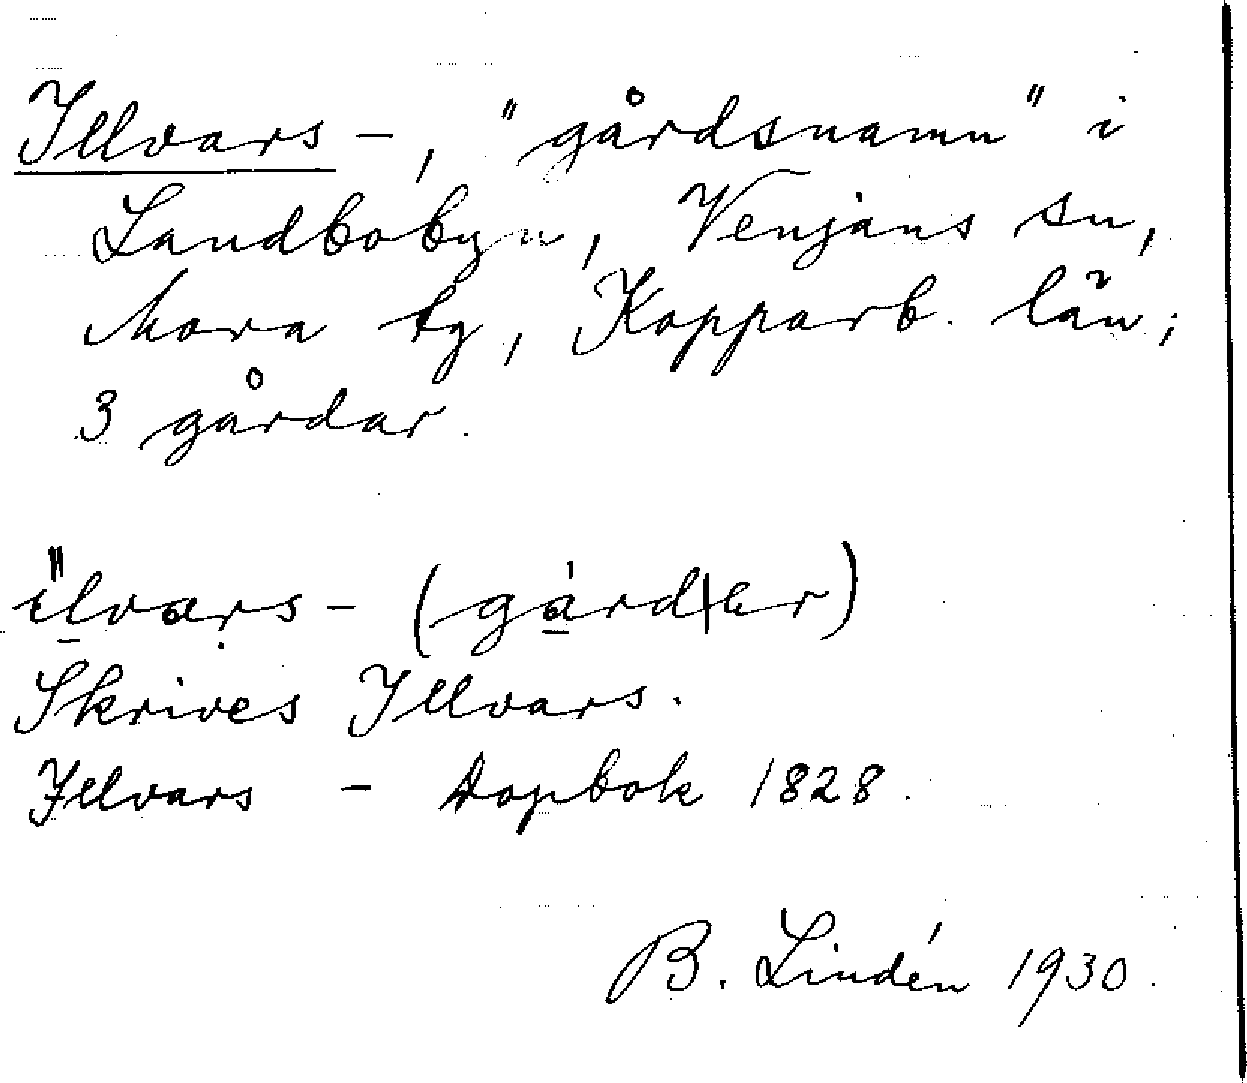 Illvars -, "gårdsnamn" i
Landbobyn, Venjans sn,
Mora tg, Kopparb. län;
3 gårdar.
ìlvars - (gárd|er)
Skrives Illvars.
Illvars - Dopbok 1828.
B. Lindén 1930.